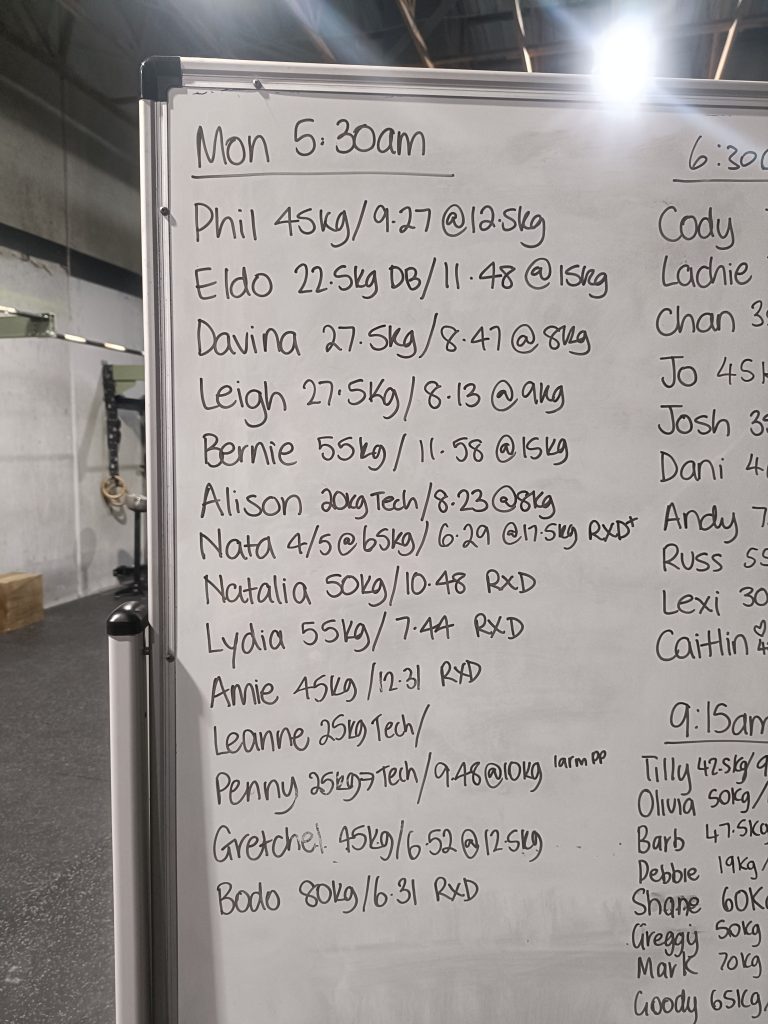 Mon 5:30am
Phil 45kg/9.27 @12.5kg
Eldo 22.5kg DB/11.48 @15kg
Davina 27.5kg/8.47 @ 8kg
Leigh 27.5kg/8.13 @9kg
Bernie 55kg/ 11.58 @15kg
Alison 20kg Tech/8.23@8kg
Nata 4/5@65kg/6.29 @17.5kg RXD+
Natalia 50kg/10.48 RXD
Lydia 55kg/7.44 RXD
Amie 45kg/12.31 RXD
Leanne 25kg Tech/
Penny 25kg→Tech/9.48@10kg 1arm PP
Gretchel 45kg/6.52@12.5kg
Bodo 80kg/6.31 RXD
6:30
Cody
Lachie
Chan 3
Jo 45
Josh 3
Dani 4
Andy 7
Russ 55
Lexi 30
Caitlin
9:15am
Tilly 42.5kg/9
Olivia 50kg/
Barb 47.5kg
Debbie 19kg/
Shane 60K
Greggy 50kg
Mark 70kg
Goody 65kg/